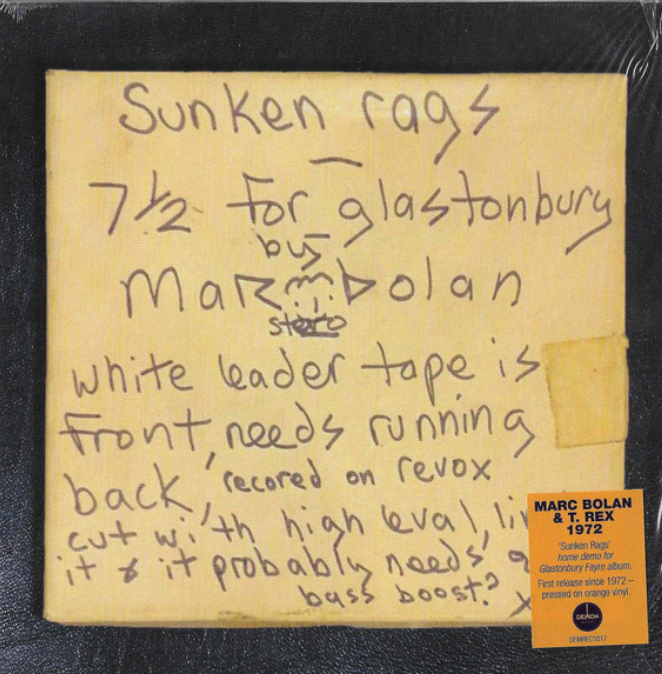 Sunken rags
7 1/2 for glastonbury
by
Marc bolan
white leader tape is
front, needs running
back, recored on revox
cut with high leval, li
it & it probably needs
bass boost? x
MARC BOLAN
& T. REX
1972
'Sunken Rags'
home demo for
Glastonbury Fayre album.
First release since 1972 –
pressed on orange vinyl.
DEMON
DEMREC1017